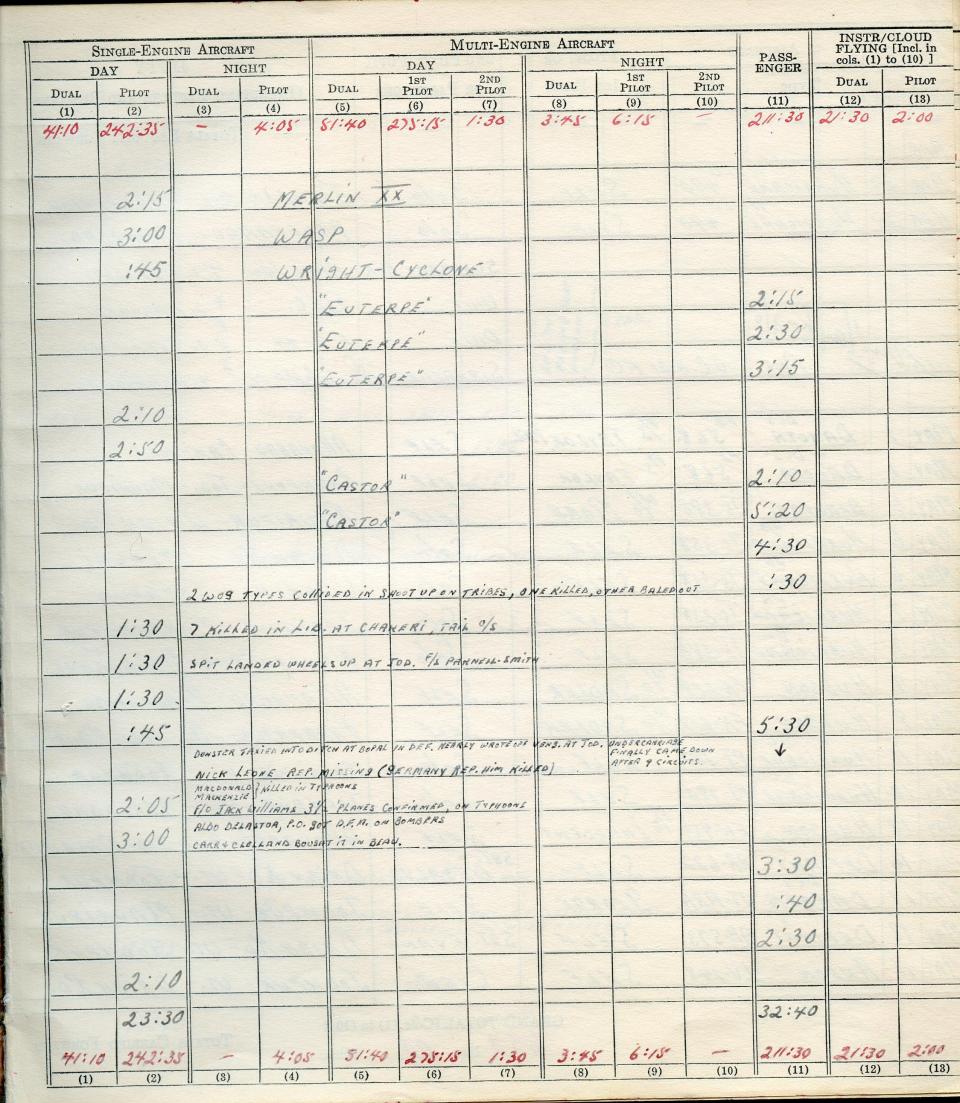 SINGLE-ENGINE AIRCRAFT MULTI-ENGINE AIRCRAFT PASS-ENGER INSTR/CLOUD FLYING [Incl. in cols. (1) to (10) ]
DAY NIGHT DAY NIGHT
DUAL PILOT DUAL PILOT DUAL 1ST PILOT 2ND PILOT DUAL 1ST PILOT 2ND PILOT DUAL PILOT
(1) (2) (3) (4) (5) (6) (7) (8) (9) (10) (11) (12) (13)
41:10 242:35 – 4:05 51:40 275:15 1:30 3:45 6:15 – 211:30 21:30 2:00
2:15 MERLIN XX
3:00 WASP
:45 WRIGHT-CYCLONE
"EUTERPE" 2:15
"EUTERPE" 2:30
"EUTERPE" 3:15
2:10
2:50
"CASTOR" 2:10
"CASTOR" 5:20
4:30
2 WOG TYPES COLLIDED IN SHOOT UP ON TRIBES, ONE KILLED, OTHER BALED OUT :30
1:30 7 KILLED IN LIB. AT CHAKERI, TAIL O/S
1:30 SPIT LANDED WHEELS UP AT JOD. F/S PARNELL-SMITH
1:30
:45 5:30
TAXIED INTO DITCH AT BOPAL IN DEF. NEARLY WROTE OFF VENG. AT JOD. UNDERCARRIAGE
FINALLY CAME DOWN
AFTER 9 CIRCUITS.
↓
NICK LEONE REP. MISSING (GERMANY REP. HIM KILLED)
MACDONALD } KILLED IN TYPHOONS
MACKENZIE
2:05 F/O JACK WILLIAMS 3½ 'PLANES CONFIRMED, ON TYPHOONS
ALDO DELASTOA, P.O. GOT D.F.M. ON BOMBERS
3:00 CARR & CLELLAND BOUGHT IT IN BEAU.
3:30
:40
2:30
2:10
23:30 32:40
41:10 242:35 – 4:05 51:40 275:15 1:30 3:45 6:15 – 211:30 21:30 2:00
(1) (2) (3) (4) (5) (6) (7) (8) (9) (10) (11) (12) (13)